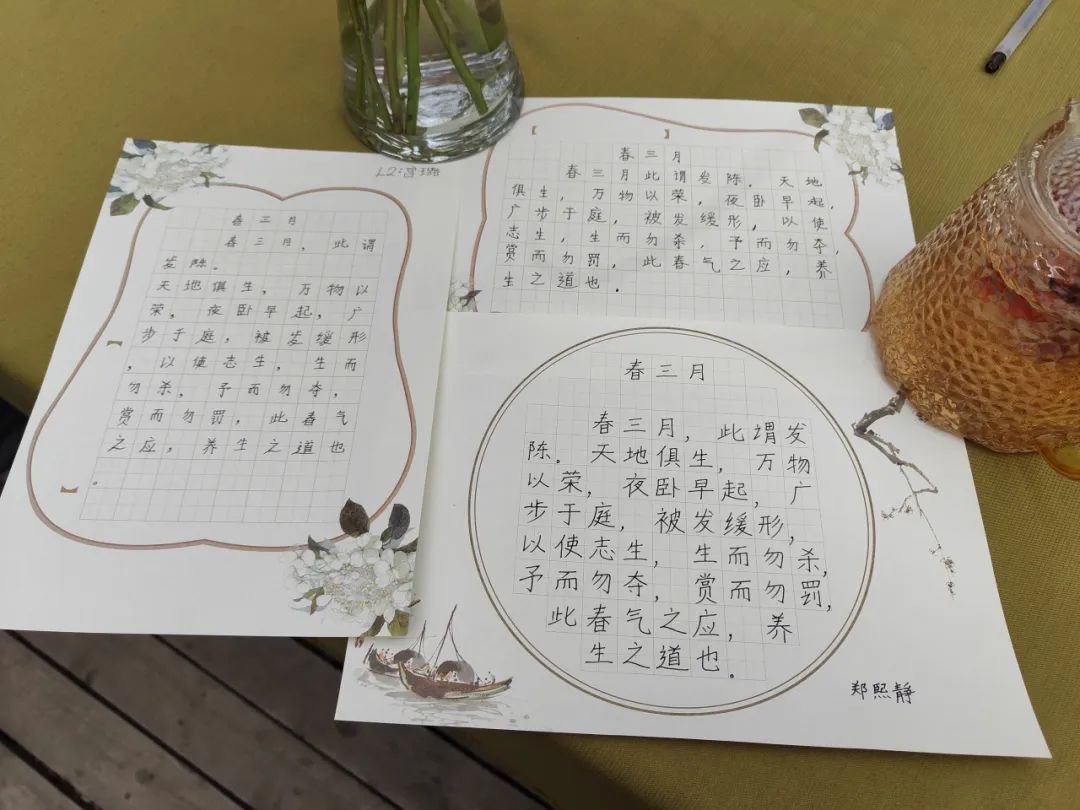 春三月
春三月，此谓
发陈.
天地俱生，万物以
荣，夜卧早起，广
步于庭，被发缓形
，以使志生，生而
勿杀，予而勿夺，
赏而勿罚，此春气
之应，养生之道也
。
春三月
春三月此谓发陈.天地
俱生，万物以荣，夜卧早起，
广步于庭，被发缓形，以使
志生，生而勿杀，予而勿夺，
赏而勿罚，此春气之应，养
生之道也.
春三月
春三月，此谓发
陈.天地俱生，万物
以荣，夜卧早起，广
步于庭，被发缓形，
以使志生，生而勿杀，
予而勿夺，赏而勿罚，
此春气之应，养
生之道也.
郑熙静